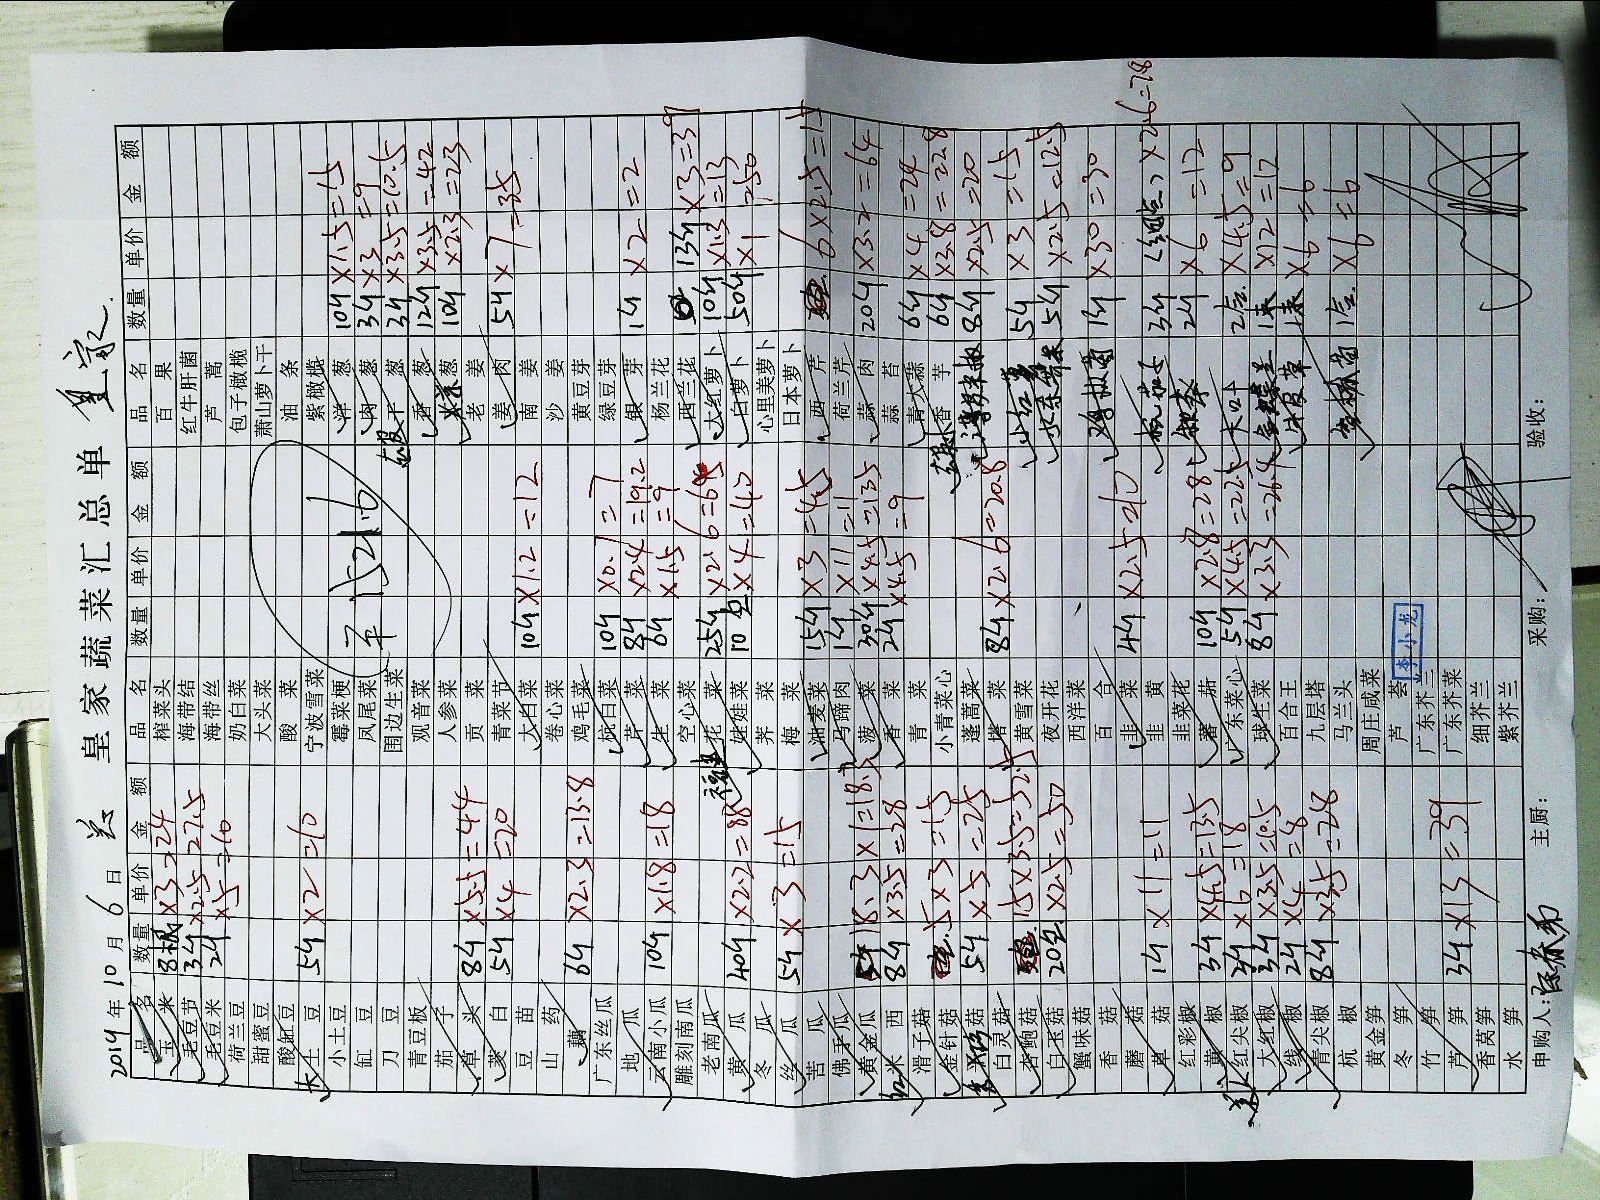 皇家蔬菜汇总单 皇家.
2014年10月6日
品名 数量 单价 金额 品名 数量 单价 金额 品名 数量 单价 金额
玉米 8根 ×3=24 榨菜头 百果
毛豆节 3斤 ×2.5=7.5 海带结 红牛肝菌
毛豆米 2斤 ×5=10 海带丝 芦蒿
荷兰豆 奶白菜 包子橄榄
甜蜜豆 大头菜 萧山萝卜干
酸豇豆 酸菜 油条
大土豆 5斤 ×2=10 宁波雪菜 紫橄榄
小土豆 霉菜梗 洋葱 10斤 ×1.5=15
豇豆 凤尾菜 肉葱 3斤 ×3=9
刀豆 围边生菜 干葱 3斤 ×3.5=10.5
青豆板 观音菜 香葱 12斤 ×3.5=42
茄子 人参菜 京葱 10斤 ×2.3=23
草头 8斤 ×5.5=44 贡菜 老姜
茭白 5斤 ×4=20 青菜节 姜肉 5斤 ×7=35
豆苗 大白菜 10斤 ×1.2=12 南姜
山药 卷心菜 沙姜
藕 6斤 ×2.3=13.8 鸡毛菜 黄豆芽
广东丝瓜 10斤 ×0.7=7 绿豆芽
地瓜 芹菜 8斤 ×2.4=19.2 银芽 1斤 ×2=2
云南小瓜 10斤 ×1.8=18 生菜 6斤 ×1.5=9 杨兰花
雕刻南瓜 空心菜 西兰花 13斤 ×3=39
老南瓜 花菜 25斤 ×2.6=65 大红萝卜 10斤 ×1.3=13
黄瓜 40斤 ×2.2=88 娃娃菜 10包 ×4=40 白萝卜 50斤 ×1=50
冬瓜 荠菜 心里美萝卜
丝瓜 5斤 ×3=15 梅菜 日本萝卜
苦瓜 油麦菜 15斤 ×3=45 西芹 6×2.5=15
佛手瓜 马蹄肉 1斤 ×11=11 荷兰芹
黄金瓜 18.3×1=18.3 菠菜 30斤 ×4.5=135 蒜肉 20斤 ×3.2=64
西米 8斤 ×3.5=28 香菜 2斤 ×4.5=9 蒜苔
滑子菇 5×3=15 青菜 青大蒜 6斤 ×4=24
金针菇 5斤 ×5=25 小青菜心 香芋 6斤 ×3.8=22.8
蓬蒿菜 8斤 ×2.5=20
白灵菇 塔菜 8斤 ×2.6=20.8
杏鲍菇 15×3.5=52.5 黄雪菜 5斤 ×3=15
白玉菇 20包 ×2.5=50 夜开花 5斤 ×2.5=12.5
蟹味菇 西洋菜
香菇 百合 1斤 ×30=30
蘑菇 韭菜 4斤 ×2.5=10
草菇 1斤 ×11=11 韭黄 3斤 ×2.6=7.8
红彩椒 韭菜花 2斤 ×6=12
黄椒 3斤 ×4.5=13.5 蕃茄 10斤 ×2.8=28
红尖椒 3斤 ×6=18 广东菜心 5斤 ×4.5=22.5 2盒 ×4.5=9
大红椒 3斤 ×3.5=10.5 球生菜 8斤 ×3.3=26.4 ×12=12
线椒 2斤 ×4=8 百合王 ×6=6
青尖椒 8斤 ×3.5=28 九层塔
杭椒 马兰头 1盒 ×6=6
黄金笋 周庄咸菜
冬笋 芦荟
竹笋 广东芥兰
芦笋 3斤 ×13=39 广东芥菜
香莴笋 细芥兰
水笋 紫芥兰
1521.6
李小龙
申购人: 主厨: 采购: 验收: